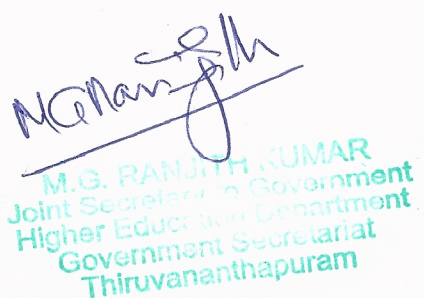 MGRanjith
M.G. RANJITH KUMAR
Joint Secretary to Government
Higher Education Department
Government Secretariat
Thiruvananthapuram